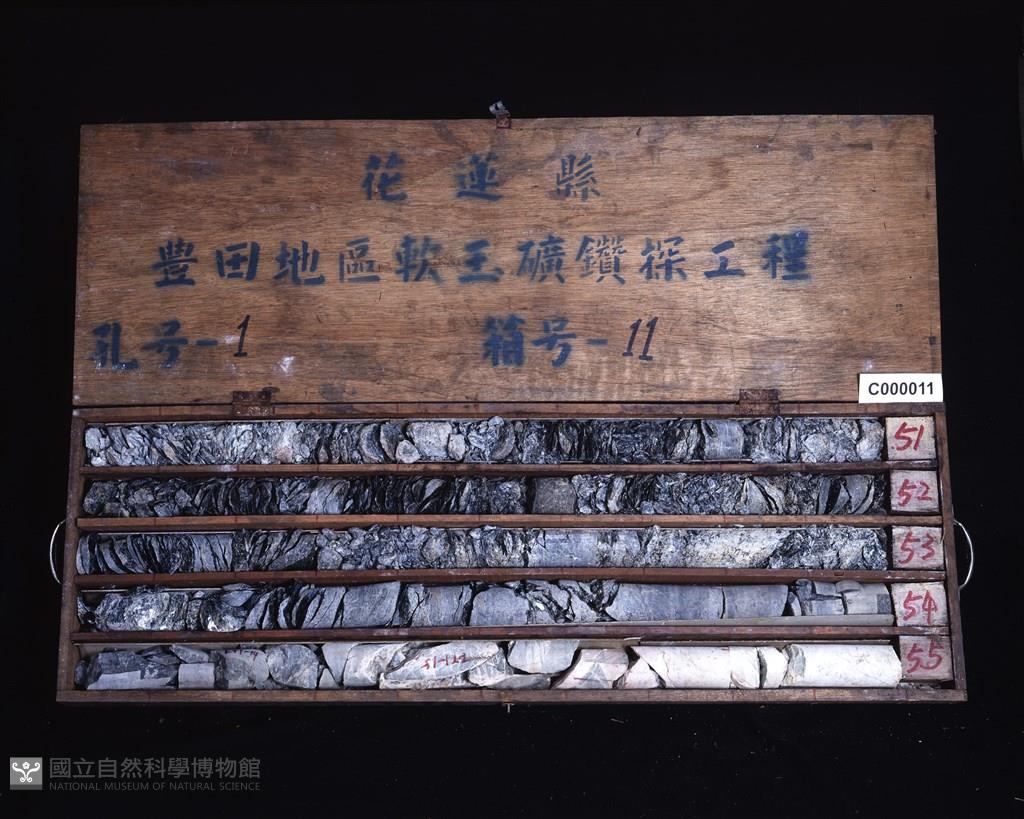 花蓮縣
豊田地區軟玉礦鑽探工程
孔号-1 箱号-11
C000011
51
52
53
54
55
51-122
國立自然科學博物館
NATIONAL MUSEUM OF NATURAL SCIENCE